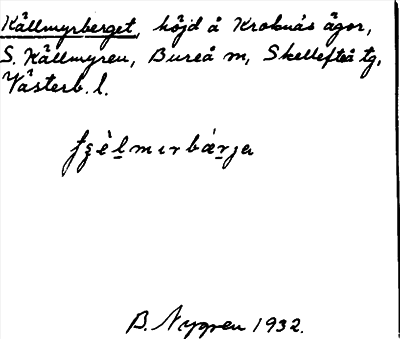 Källmyrberget, höjd å Kroknäs ägor,
S. Källmyren, Bureå m, Skellefteå tg,
Västerb. l.
B. Nygren 1932.